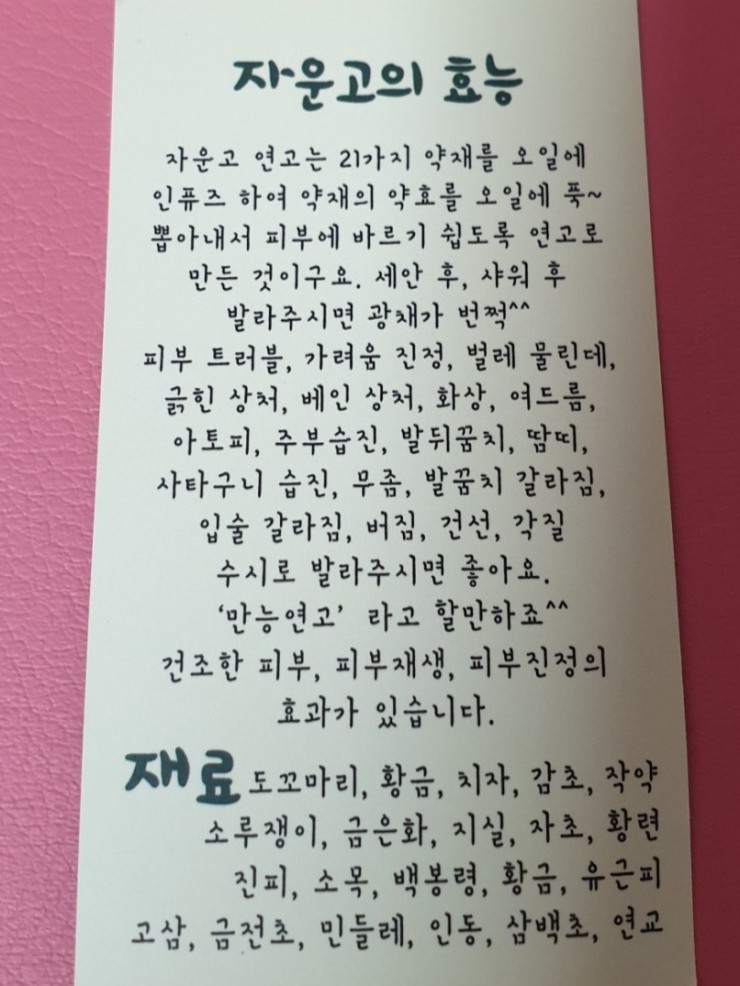 자운고의 효능
자운고 연고는 21가지 약재를 오일에
인퓨즈 하여 약재의 약효를 오일에 푹~
뽑아내서 피부에 바르기 쉽도록 연고로
만든 것이구요. 세안 후, 샤워 후
발라주시면 광채가 번쩍^^
피부 트러블, 가려움 진정, 벌레 물린데,
긁힌 상처, 베인 상처, 화상, 여드름,
아토피, 주부습진, 발뒤꿈치, 땀띠,
사타구니 습진, 무좀, 발꿈치 갈라짐,
입술 갈라짐, 버짐, 건선, 각질
수시로 발라주시면 좋아요.
‘만능연고’ 라고 할만하죠^^
건조한 피부, 피부재생, 피부진정의
효과가 있습니다.
재료 도꼬마리, 황금, 치자, 감초, 작약
소루쟁이, 금은화, 지실, 자초, 황련
진피, 소목, 백봉령, 황금, 유근피
고삼, 금전초, 민들레, 인동, 삼백초, 연교